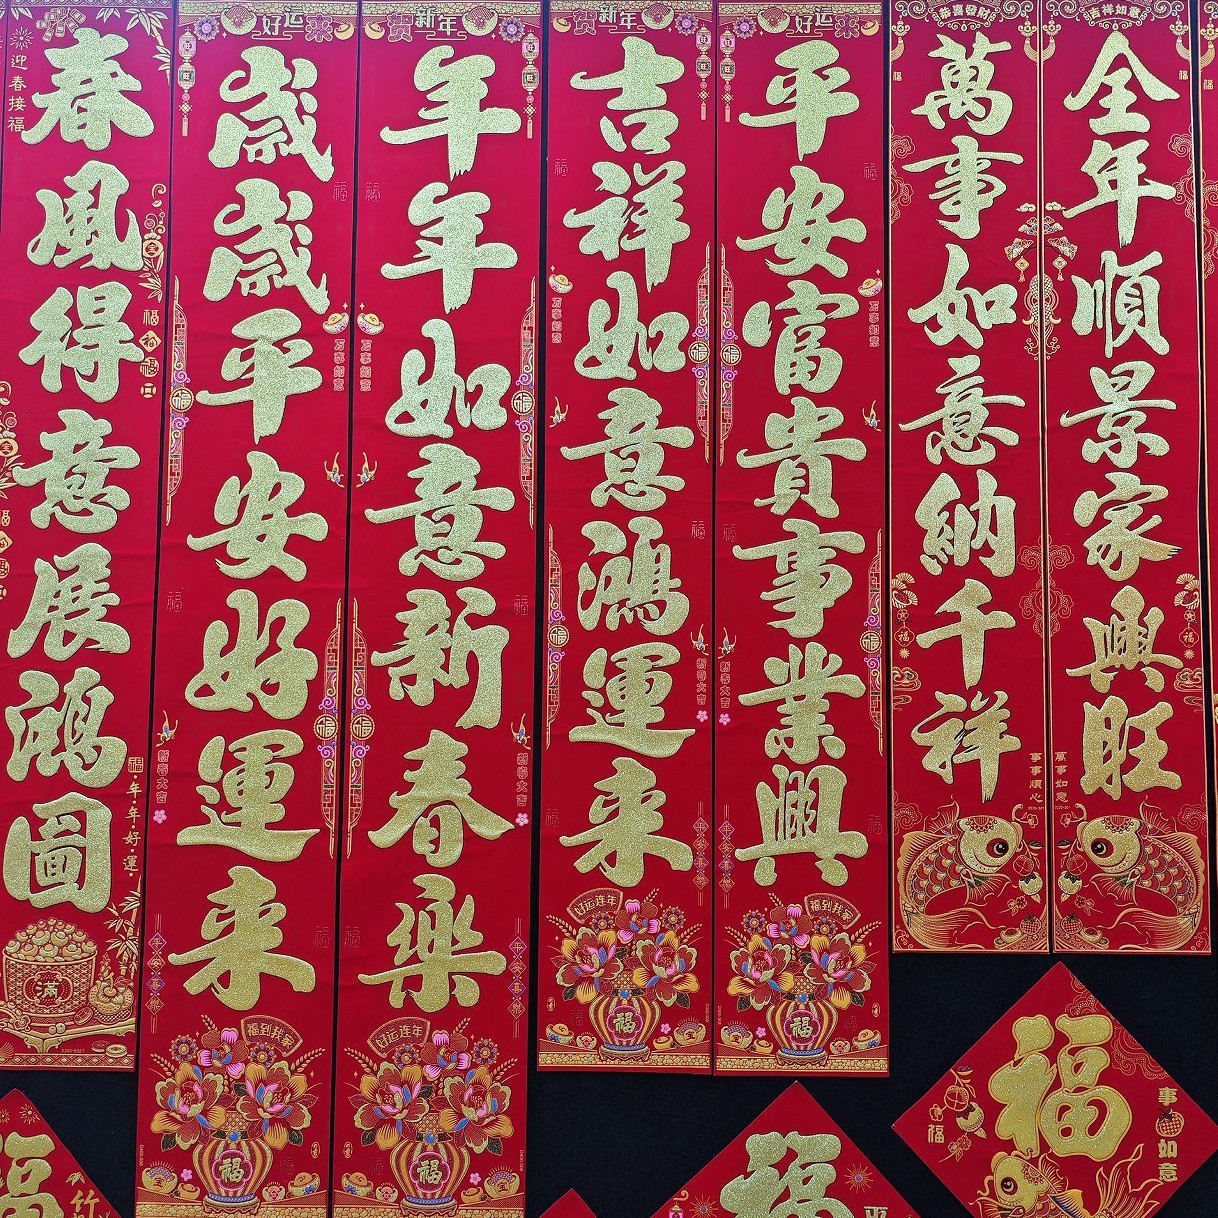 全年順景家興旺
萬事如意納千祥
平安富貴事業興
吉祥如意鴻運來
年年如意新春樂
歲歲平安好運来
春風得意展鴻圖
吉祥如意
恭喜發財
好运来
贺新年
新年
好运来
贺新年
好运来
迎春接福
福年年好運
满
萬事如意
事事順心
万事如意
万事如意
万事如意
万事如意
新春大吉
新春大吉
新春大吉
新春大吉
平安喜樂
平安喜樂
平安喜樂
平安喜樂
福到我家
好运连年
好运连年
福到我家
福
福
福
福
福
事事如意
福
福
福
竹